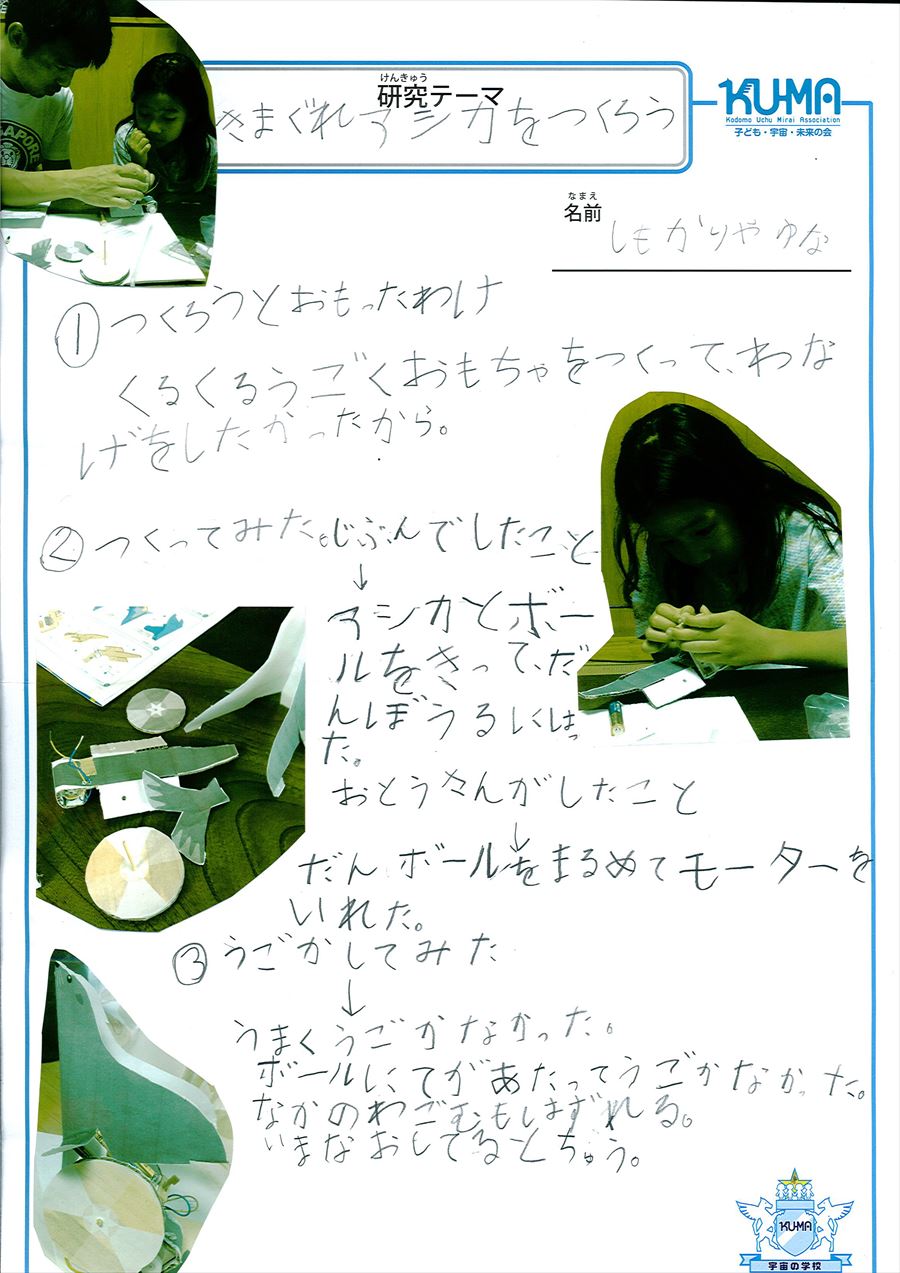 けんきゅう
研究テーマ
きまぐれアシカをつくろう
KU-MA
Kodomo Uchu Mirai Association
子ども・宇宙・未来の会
なまえ
名前
しもかりや ゆな
① つくろうとおもったわけ
くるくるうごくおもちゃをつくって、わな
げをしたかったから。
② つくってみた。じぶんでしたこと
↓
アシカとボー
ルをきって、だ
んぼうるにはっ
た。
おとうさんがしたこと
↓
だんボールをまるめてモーターを
いれた。
③ うごかしてみた
↓
うまくうごかなかった。
ボールにてがあたってうごかなかった。
なかのわごむもはずれる。
いまなおしてるとちゅう。
KU-MA
宇宙の学校